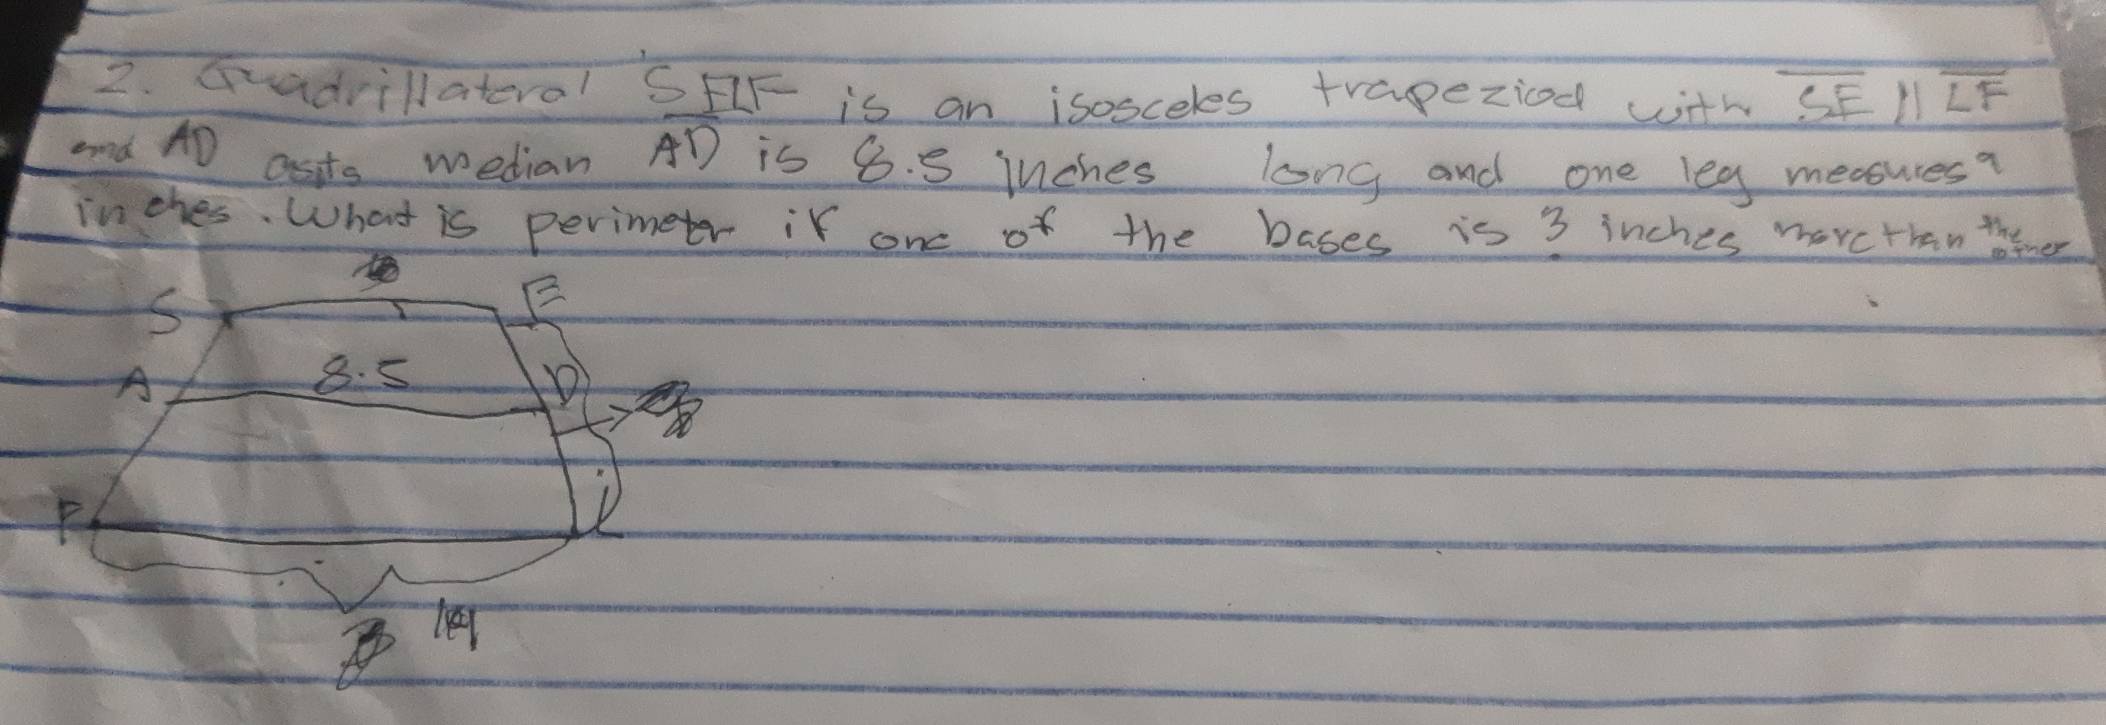 2. Quadrillateral SELF is an isosceles trapeziod with SE || LF
and AD as its median AD is 8.5 inches long and one leg measures 9
inches. What is perimeter if one of the bases is 3 inches more than the other
S E
A 8.5 D
F L